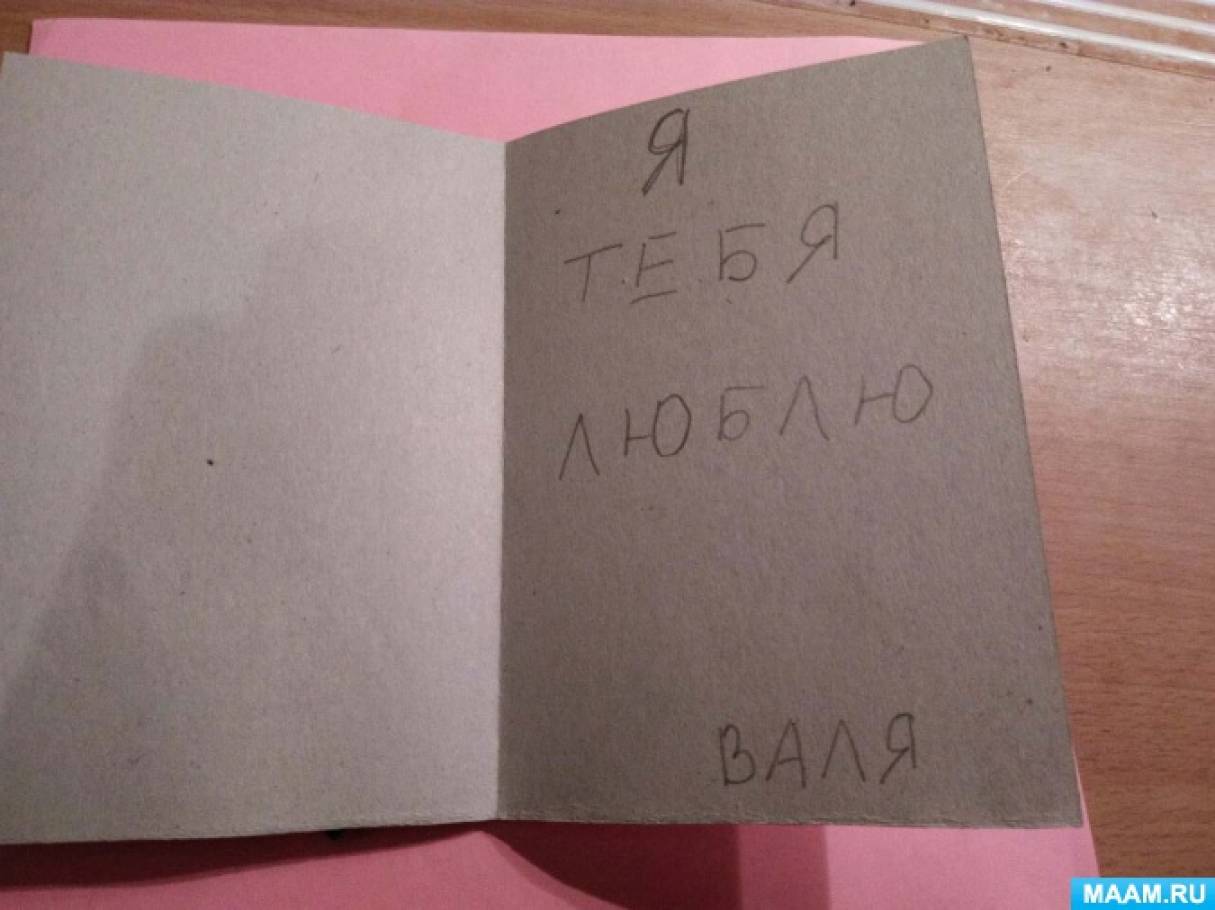 Я
ТЕБЯ
ЛЮБЛЮ
ВАЛЯ
MAAM.RU